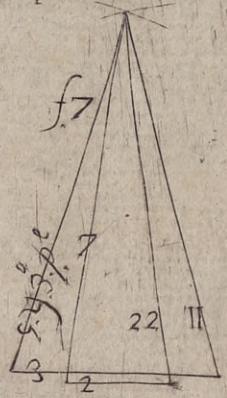 f.7
7
22 11
3
2